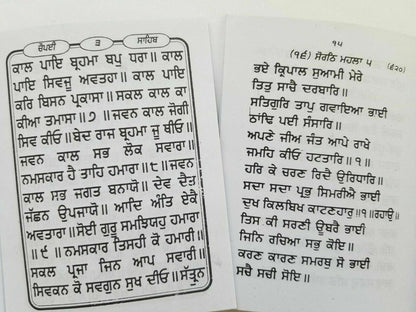 ਚੌਪਈ ੩ ਸਾਹਿਬ
ਕਾਲ ਪਾਇ ਬ੍ਰਹਮਾ ਬਪੁ ਧਰਾ॥ ਕਾਲ
ਪਾਇ ਸਿਵਜੂ ਅਵਤਰਾ॥ ਕਾਲ ਪਾਇ
ਕਰਿ ਬਿਸਨ ਪ੍ਰਕਾਸਾ॥ ਸਕਲ ਕਾਲ ਕਾ
ਕੀਆ ਤਮਾਸਾ॥੭॥ ਜਵਨ ਕਾਲ ਜੋਗੀ
ਸਿਵ ਕੀਓ॥ ਬੇਦ ਰਾਜ ਬ੍ਰਹਮਾ ਜੂ ਥੀਓ॥
ਜਵਨ ਕਾਲ ਸਭ ਲੋਕ ਸਵਾਰਾ॥
ਨਮਸਕਾਰ ਹੈ ਤਾਹਿ ਹਮਾਰਾ॥੮॥ ਜਵਨ
ਕਾਲ ਸਭ ਜਗਤ ਬਨਾਯੋ॥ ਦੇਵ ਦੈਤ
ਜੱਛਨ ਉਪਜਾਯੋ॥ ਆਦਿ ਅੰਤਿ ਏਕੈ
ਅਵਤਾਰਾ॥ ਸੋਈ ਗੁਰੂ ਸਮਝਿਯਹੁ ਹਮਾਰਾ
॥੯॥ ਨਮਸਕਾਰ ਤਿਸਹੀ ਕੋ ਹਮਾਰੀ॥
ਸਕਲ ਪ੍ਰਜਾ ਜਿਨ ਆਪ ਸਵਾਰੀ॥
ਸਿਵਕਨ ਕੋ ਸਵਗੁਨ ਸੁਖ ਦੀਓ॥ ਸੱਤ੍ਰੁਨ
੧੫
(੧੬) ਸੋਰਠਿ ਮਹਲਾ ੫ (੬੨੦)
ਭਏ ਕ੍ਰਿਪਾਲ ਸੁਆਮੀ ਮੇਰੇ
ਤਿਤੁ ਸਾਚੈ ਦਰਬਾਰਿ॥
ਸਤਿਗੁਰਿ ਤਾਪੁ ਗਵਾਇਆ ਭਾਈ
ਠਾਂਢਿ ਪਈ ਸੰਸਾਰਿ॥
ਅਪਣੇ ਜੀਅ ਜੰਤ ਆਪੇ ਰਾਖੇ
ਜਮਹਿ ਕੀਓ ਹਟਤਾਰਿ॥੧॥
ਹਰਿ ਕੇ ਚਰਣ ਰਿਦੈ ਉਰਿਧਾਰਿ॥
ਸਦਾ ਸਦਾ ਪ੍ਰਭੁ ਸਿਮਰੀਐ ਭਾਈ
ਦੁਖ ਕਿਲਬਿਖ ਕਾਟਣਹਾਰੁ॥੧॥ਰਹਾਉ॥
ਤਿਸ ਕੀ ਸਰਣੀ ਊਬਰੈ ਭਾਈ
ਜਿਨਿ ਰਚਿਆ ਸਭੁ ਕੋਇ॥
ਕਰਣ ਕਾਰਣ ਸਮਰਥੁ ਸੋ ਭਾਈ
ਸਚੈ ਸਚੀ ਸੋਇ॥